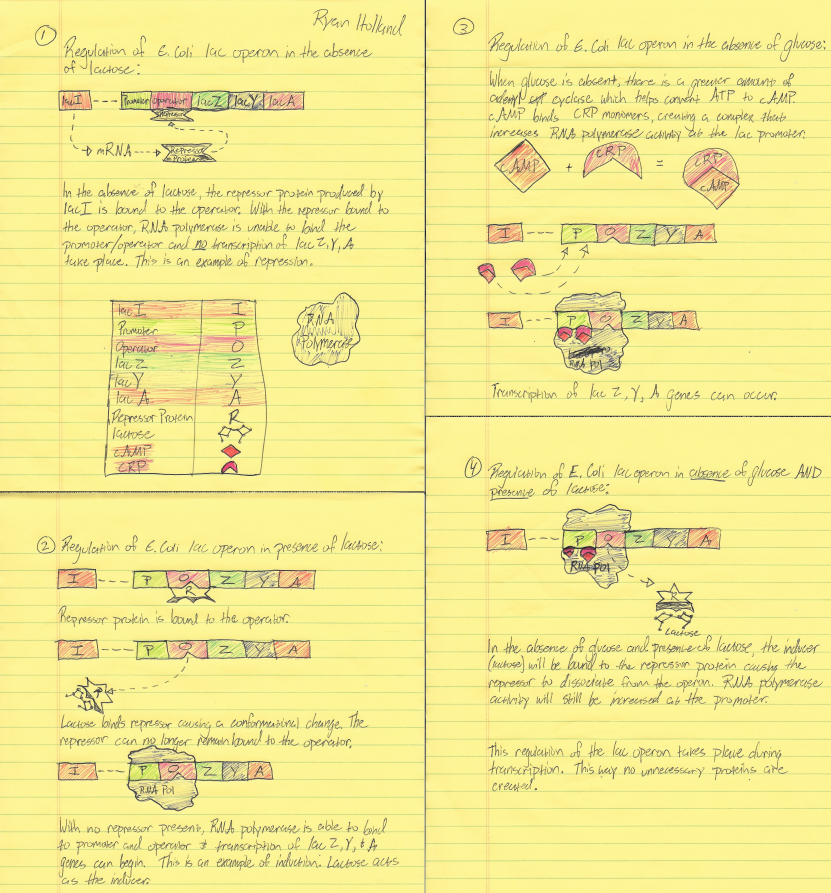 Ryan Holland
1
Regulation of E. Coli lac operon in the absence
of lactose:
lacI Promoter operator lacZ lacY lacA
Repressor
mRNA Repressor
Protein
In the absence of lactose, the repressor protein produced by
lacI is bound to the operator. With the repressor bound to
the operator, RNA polymerase is unable to bind the
promoter/operator and no transcription of lac Z, Y, A
take place. This is an example of repression.
lac I I
Promoter P
Operator O
lac Z Z
lac Y Y
lac A A
Repressor Protein R
lactose
cAMP
CRP
RNA
Polymerase
2 Regulation of E. Coli lac operon in presence of lactose:
I P O Z Y A
R
Repressor protein is bound to the operator.
I P O Z Y A
Lactose binds repressor causing a conformational change. The
repressor can no longer remain bound to the operator.
I P O Z Y A
RNA Pol
With no repressor present, RNA polymerase is able to bind
to promoter and operator & transcription of lac Z, Y, & A
genes can begin. This is an example of induction. Lactose acts
as the inducer.
3
Regulation of E. Coli lac operon in the absence of glucose:
When glucose is absent, there is a greater amount of
adenyl cyclase which helps convert ATP to cAMP.
cAMP binds CRP monomers, creating a complex that
increases RNA polymerase activity at the lac promoter.
cAMP + CRP = CRP
cAMP
I P O Z Y A
I P O Z Y A
RNA Pol
Transcription of lac Z, Y, A genes can occur.
4 Regulation of E. Coli lac operon in absence of glucose AND
presence of lactose:
I P O Z Y A
RNA Pol
R
Lactose
In the absence of glucose and presence of lactose, the inducer
(lactose) will be bound to the repressor protein causing the
repressor to dissociate from the operon. RNA polymerase
activity will still be increased at the promoter.
This regulation of the lac operon takes place during
transcription. This way no unnecessary proteins are
created.